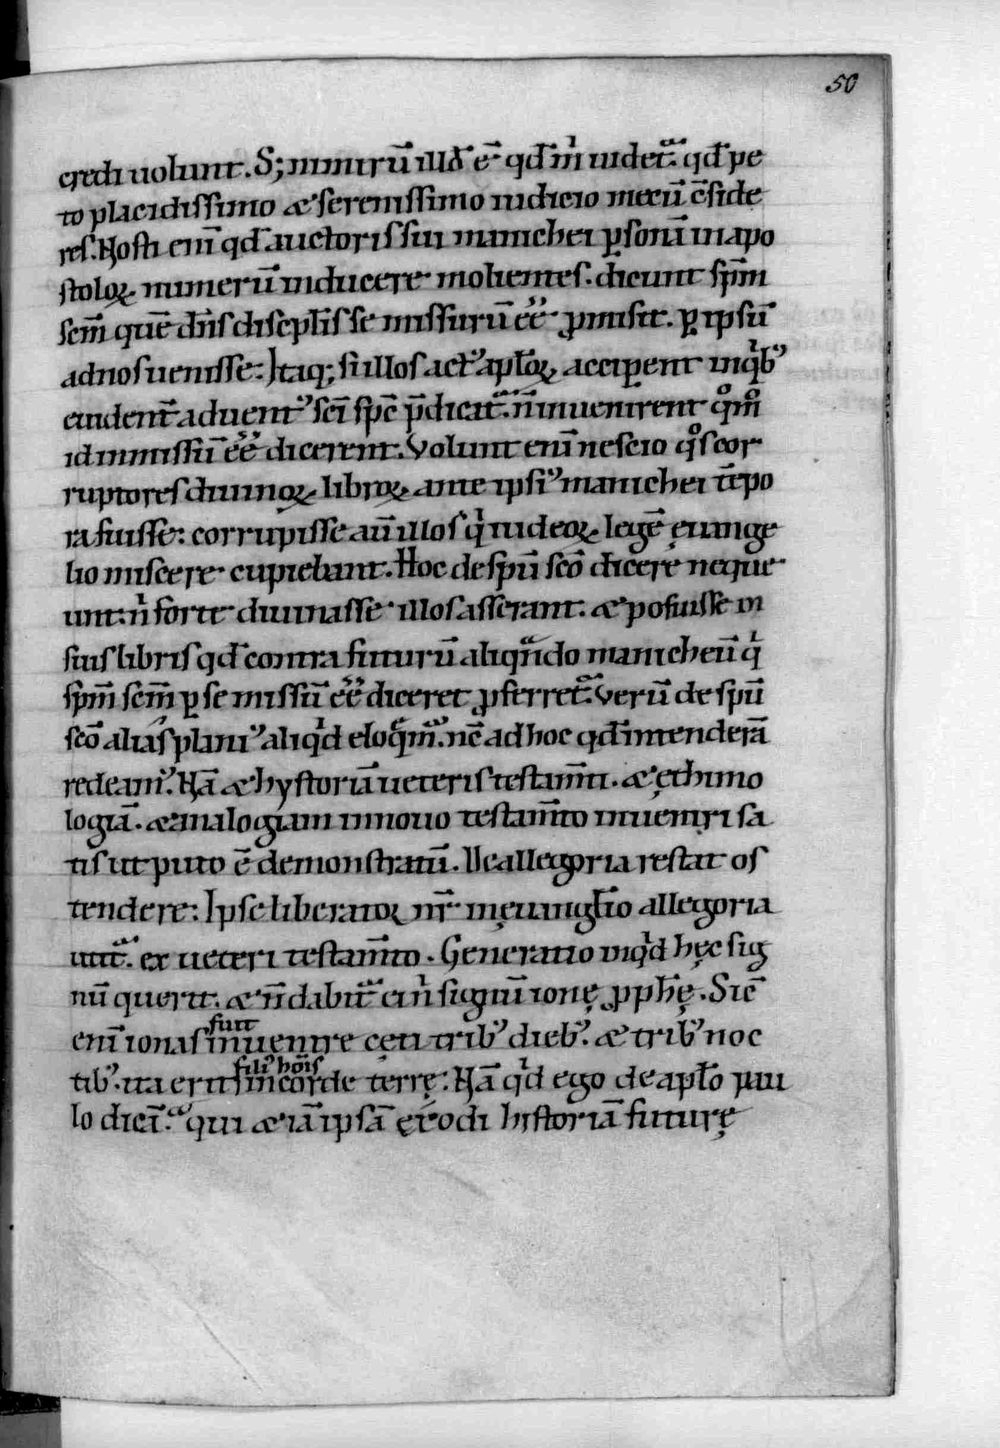 50
credi uolunt. S; nimirū illd ē qd m̊ uidet᷑. qd pe
to placidissimo & serenissimo iudicio mecū c̄side
res. Nosti eni̅ qd auctoris sui manichei ꝑsonā in apo
stoloꝝ numerū inducere molientes. dicunt spm̄
scm̄ quē dn̄s discipl̄is se missurū ēē ꝓmisit. ꝑ ipsū
ad nos uenisse: Itaq; si illos act᷒ apl̄oꝝ acciꝑent in qͥb᷒
euident̄ aduent᷒ sc̄i sp̄c p̄dicat᷑. n̄ inuenirent qͦmͦ
id inmissū ēē dicerent. Volunt eni̅ nescio qͦs cor
ruptores diuinoꝝ libroꝝ ante ipsi᷒ manichei te̅po
ra fuisse: corrupisse au̅ illos qͥ iudeoꝝ legē ęuange
lio miscere cupiebant. Hoc de spū scō dicere neque
unt: nͥ forte diuinasse illos asserant. & posuisse in
suis libris qd contra futurū aliqᷓndo manicheū qͥ
spm̄ scm̄ ꝑ se missū ēē diceret ꝓferret᷑. Verū de spū
scō alias plani᷒ aliqͥd eloqᷓm᷒. nc̄ ad hoc qd intenderā
redeam᷒. Nā & hystoriā ueteris testam̄ti. & ęthimo
logiā. & analogiam in nouo testam̄to inueniri sa
tis ut puto ē demonstratū. Ve allegoria restat os
tendere: Ipse liberatoꝛ nr̄ in ęuangl̄io allegoria
utit᷑. ex ueteri testam̄to. Generatio inqͥd hęc sig
nū querit. & n̄ dabit᷑ ei nͥ signū ionę ꝓph̄ę. Sic̄
eni̅ ionas fuit in uentre ceti trib᷒ dieb᷒. & trib᷒ noc
tib᷒. ita erit fili᷒ hōis in corde terrę. Nā qͥd ego de apl̄o pau
lo dicā. qui & iā ipsā exodi historiā futurę